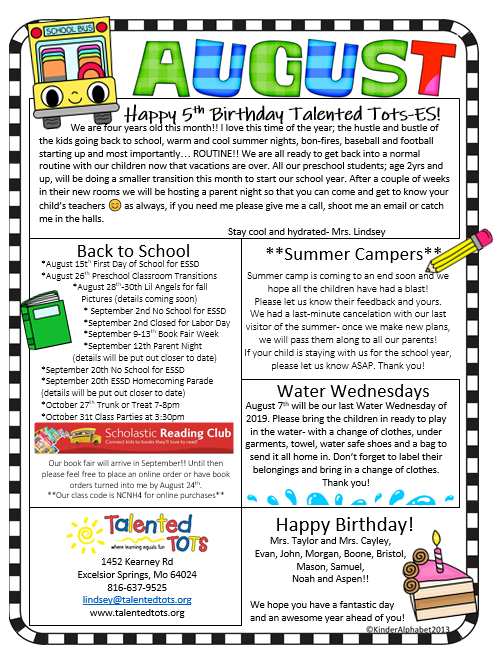 SCHOOL BUS
AUGUST
Happy 5th Birthday Talented Tots-ES!
We are four years old this month!! I love this time of the year; the hustle and bustle of
the kids going back to school, warm and cool summer nights, bon-fires, baseball and football
starting up and most importantly… ROUTINE!! We are all ready to get back into a normal
routine with our children now that vacations are over. All our preschool students; age 2yrs and
up, will be doing a smaller transition this month to start our school year. After a couple of weeks
in their new rooms we will be hosting a parent night so that you can come and get to know your
child's teachers 😊 as always, if you need me please give me a call, shoot me an email or catch
me in the halls.
Stay cool and hydrated- Mrs. Lindsey
Back to School
*August 15th First Day of School for ESSD
*August 26th Preschool Classroom Transitions
*August 28th-30th Lil Angels for fall
Pictures (details coming soon)
* September 2nd No School for ESSD
*September 2nd Closed for Labor Day
*September 9-13th Book Fair Week
*September 12th Parent Night
(details will be put out closer to date)
*September 20th No School for ESSD
*September 20th ESSD Homecoming Parade
(details will be put out closer to date)
*October 27th Trunk or Treat 7-8pm
*October 31st Class Parties at 3:30pm
SCHOLASTIC Reading Club
Connect kids to books they'll love to read!
Our book fair will arrive in September!! Until then
please feel free to place an online order or have book
orders turned into me by August 24th.
**Our class code is NCNH4 for online purchases**
Talented
TOTS
where learning equals fun
1452 Kearney Rd
Excelsior Springs, Mo 64024
816-637-9525
lindsey@talentedtots.org
www.talentedtots.org
**Summer Campers**
Summer camp is coming to an end soon and we
hope all the children have had a blast!
Please let us know their feedback and yours.
We had a last-minute cancelation with our last
visitor of the summer- once we make new plans,
we will pass them along to all our parents!
If your child is staying with us for the school year,
please let us know ASAP. Thank you!
Water Wednesdays
August 7th will be our last Water Wednesday of
2019. Please bring the children in ready to play
in the water- with a change of clothes, under
garments, towel, water safe shoes and a bag to
send it all home in. Don't forget to label their
belongings and bring in a change of clothes.
Thank you!
Happy Birthday!
Mrs. Taylor and Mrs. Cayley,
Evan, John, Morgan, Boone, Bristol,
Mason, Samuel,
Noah and Aspen!!
We hope you have a fantastic day
and an awesome year ahead of you!
©KinderAlphabet2013